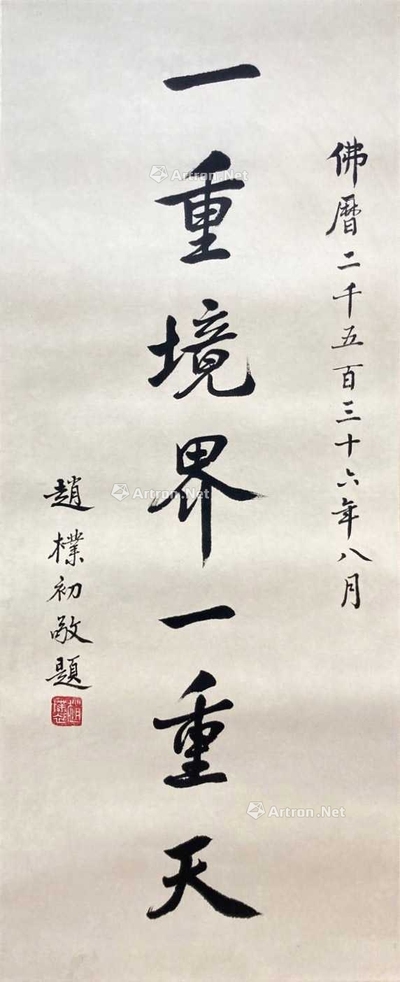 佛曆二千五百三十六年八月
一重境界一重天
趙樸初敬題
Artron.Net
Artron.Net
Artron.Net
Artron.Net